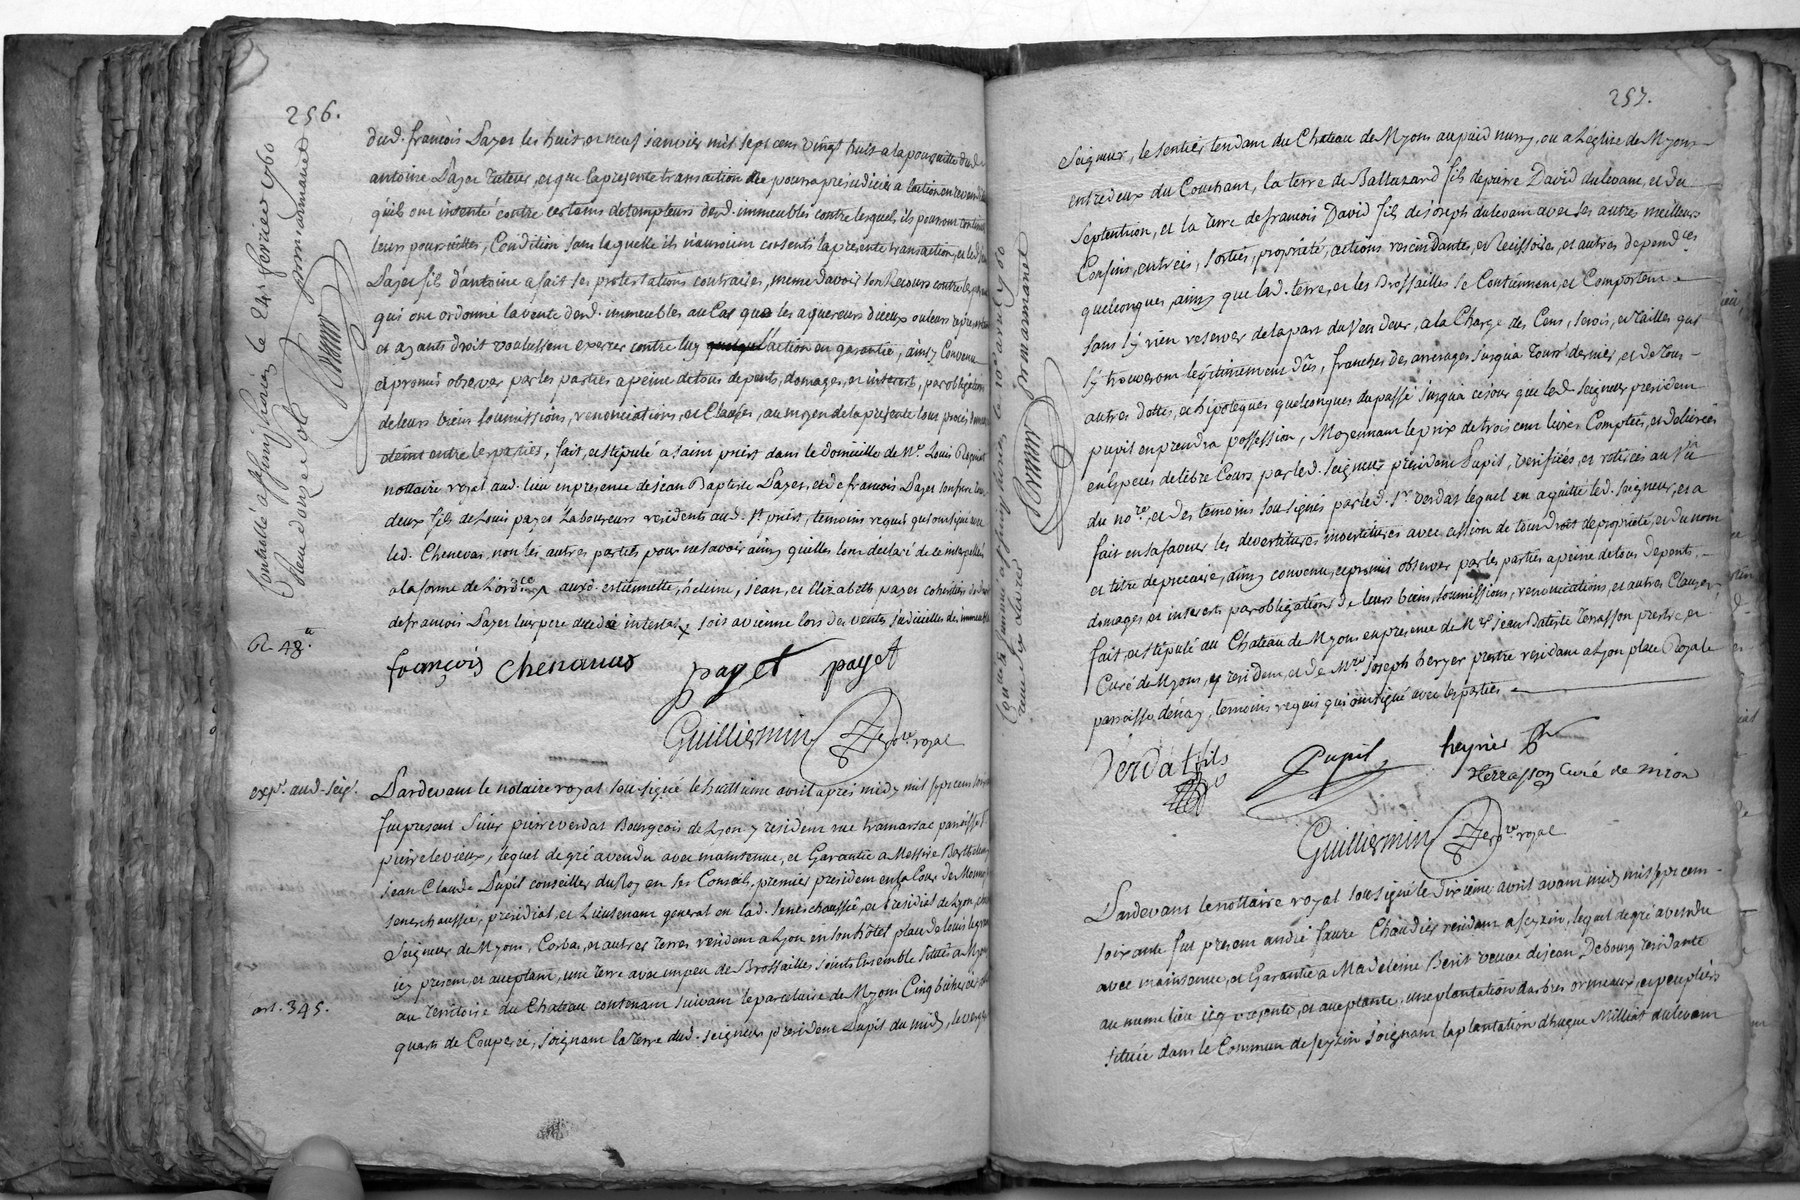 256.
dud. françois Payet les huit et neuf janvier mil sept cens vingt huit a la poursuitte dud.
antoine Payet tuteur, et que la presente transaction ne pourra prejudicier a laction en
quils ont intenté contre certains detempteurs desd. immeubles contre lesquels ils pourront
leurs poursuittes, Condition sans laquelle ils n'auroient consenti la presente transaction, et led.
Payet fils d'antoine a fait ses protestations contraires, meme davoir son Recours contre
qui ont ordonné la vente desd. immeubles au Cas que les aquereurs diceux ou leurs
et ayants droit voulussent exercer contre luy l'action en garantie, ainsy Convenu
et promis observer par les parties a peine de tous depents, domages, et interest, par obligations
de leurs biens soumissions, renonciations, et Clauses, au moyen de la presente tous procés
éteint entre les parties, fait, et stipulé a saint priest dans le domicille de Me. Louis
nottaire royal aud. lieu en presence de jean Baptiste Payet, et de francois Payet son frere
deux fils de Louis payet Laboureurs residents aud. St priest, temoins requis qui ont signé avec
led. Chenevas, non les autres parties pour ne savoir ainsy quelles l'ont declaré de ce interpellés
a la forme de L'ordce auxd. estiennette, jean, et Elizabeth payet cohéritiers
de francois Payet leur pere soit avienne lors des ventes judicielles des immeubles
françois Chenauas payet payet
Guilliermin no.re royal
R. 48.s
Controllé a le 24e fevrier 1760
Guilliermin
exp.é aud. seig.r
Pardevant le notaire royal sousigné le huitieme avril apres midy mil sept cens
fut present Sieur pierre verdat Bourgeois de Lyon y resident rue tramassac paroisse St
pierre levieux, lequel de gré a vendu avec maintenue, et Garantie a Messire Barthelemy
jean Claude Pupil conseiller du Roy en ses Conseils, premier president en la Cour des Monnoyes
seneschaussée, présidial, et Lieutenant general en lad. seneschaussée, et presidial de Lyon,
Seigneur de Myons, Corbas, et autres Terres, resident a Lyon en son hôtel place de Louis le grand
icy present, et aceptant, une Terre avec un peu de Brossailles joints Ensemble situés a Myons
au Territoire du Chateau contenant suivant le parcelaire de Myons Cinq bicherées
quarts de Couperée, joignant la Terre dud. seigneur president Pupil du midy, le
art. 345.
257.
Seigneur, le sentier tendant du Chateau de Myons au puid nurry, ou a Leglise de Myons
entredeux du Couchant, la terre de Baltazard fils de pierre David du levant, et du
Septention, et la Terre de francois David fils de joseph du levant avec ses autres meilleurs
Confins, entrées, sorties, propriété, actions rescindantes, et Recissoires, et autres dependces
quelconques, ainsy que lad. terre, et les Brossailles se Contiennent, et Comportent
sans s'y rien reserver de la part du Vendeur, a la Charge des Cens, servis, et tailles qui
s'y trouveront legitimement dûs, franches des arrerages jusqua Toussts dernier, et de tous
autres dettes, et hipoteques quelconques du passé jusqua ce jour que led. Seigneur president
pupil en prendra possession, Moyennant le prix de trois cent livres Comptées, et delivrées
en Especes de Libre Cours par led. Seigneur president Pupil, verifiées, et retirées au Vû
du no.re, et des temoins Sousignés par led. Sr verdat lequel en a quitté led. seigneur, et a
fait en sa faveur les devestitures investitures avec cession de tout droit de propriété, et du nom
et titre de precaire, ainsy convenu, et promis observer par les parties a peine de tous depents,
domages et interests par obligations de leurs biens, soumissions, renonciations, et autres Clauses,
fait, et stipulé au Chateau de Myons en presence de Mre jean Batiste Terrasson prestre et
Curé de Myons, y resident, et de Mre joseph heryer prestre resident a Lyon place Royale
paroisse d'énay, temoins requis qui ont signé avec les parties
Verdat fils Pupil heyrier ptre
Terrasson Curé de mion
Guilliermin no.re royal
Controllé a le 10e avril 1760
Guilliermin
Pardevant le nottaire royal sousigné le Dixième avril avant midy mil sept cent
soixante fut present andré faure Chaudier resident a feyzin, lequel de gré a vendu
avec maintenue, et Garantie a Madeleine Berit veuve de jean Debourg residante
au meme lieu icy presente, et aceptante, une plantation d'arbres ormeaux, et peupliers
située dans le Commun de feyzin joignant la plantation d'hugue Milliat du levant